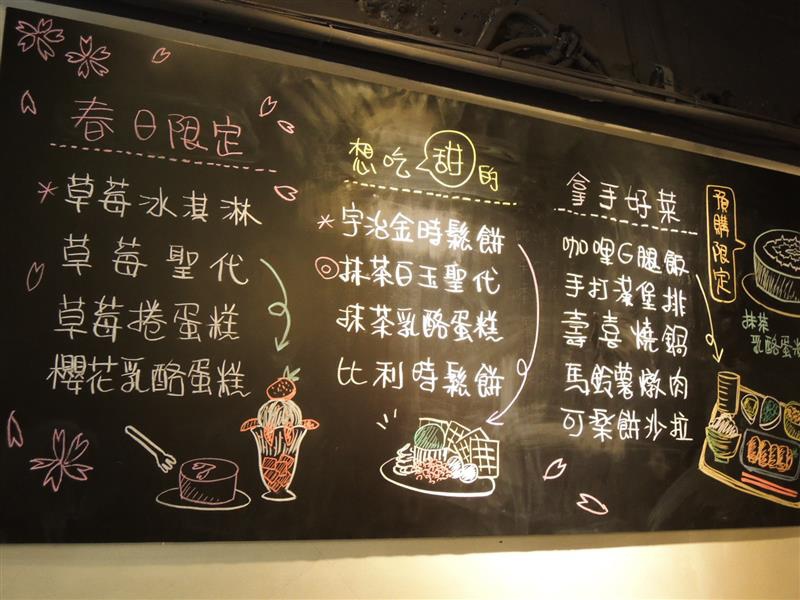 春日限定
草莓冰淇淋
草莓聖代
草莓捲蛋糕
櫻花乳酪蛋糕
想吃甜的
宇治金時鬆餅
抹茶白玉聖代
抹茶乳酪蛋糕
比利時鬆餅
拿手好菜
咖哩G腿飯
手打漢堡排
壽喜燒鍋
馬鈴薯燉肉
可樂餅沙拉
預購限定
抹茶
乳酪蛋糕